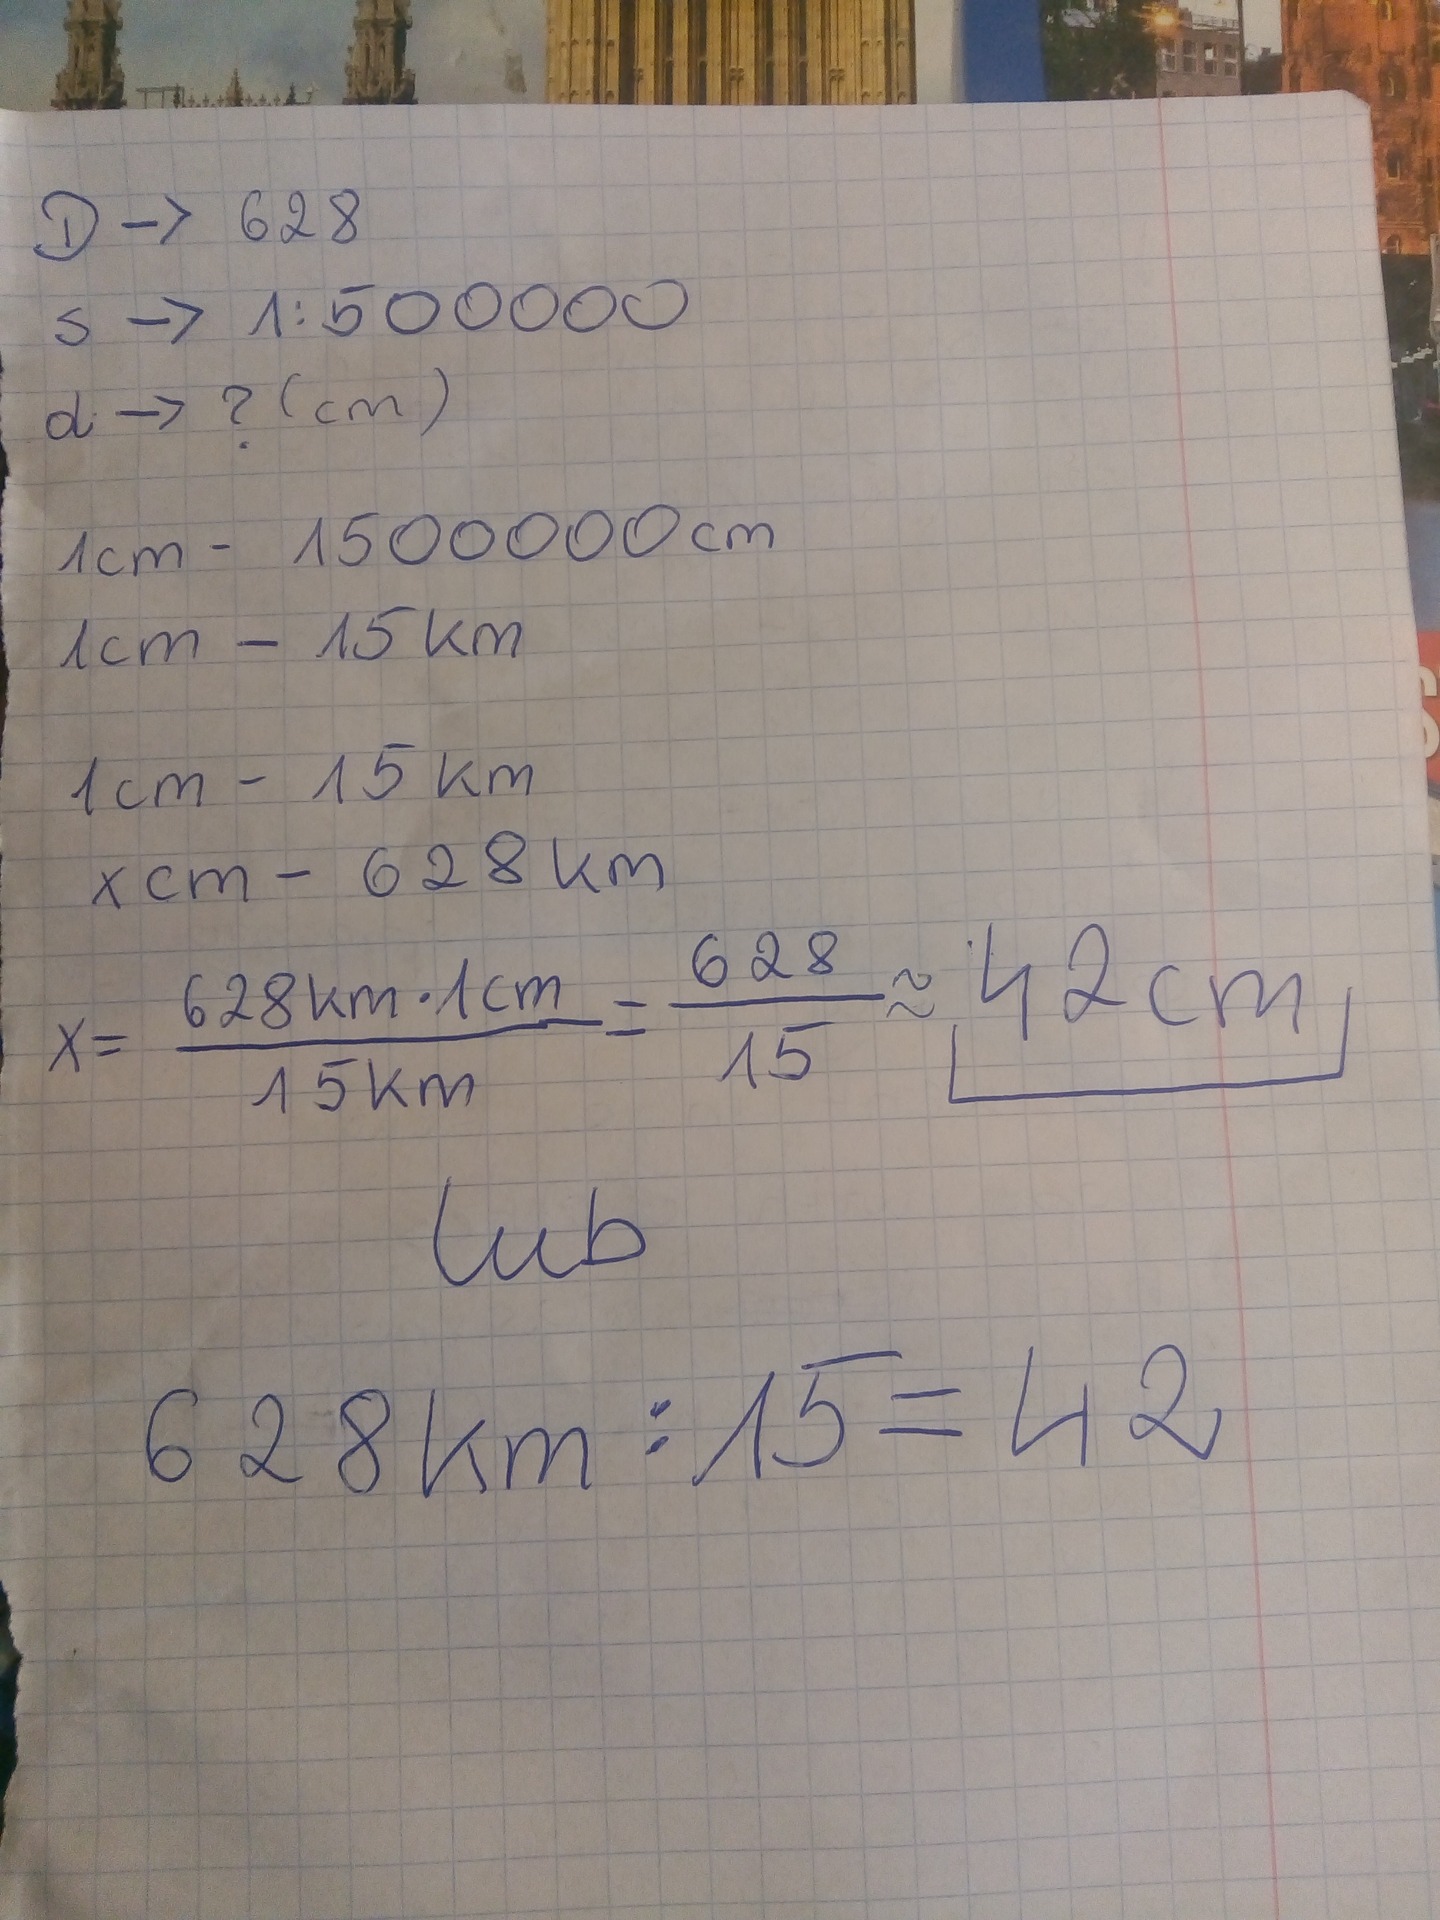 D -> 628
s -> 1:500000
d -> ? (cm)
1cm - 1500000cm
1cm - 15km
1cm - 15km
xcm - 628km
x = 628km·1cm / 15km = 628 / 15 ≈ 42cm
lub
628km : 15 = 42